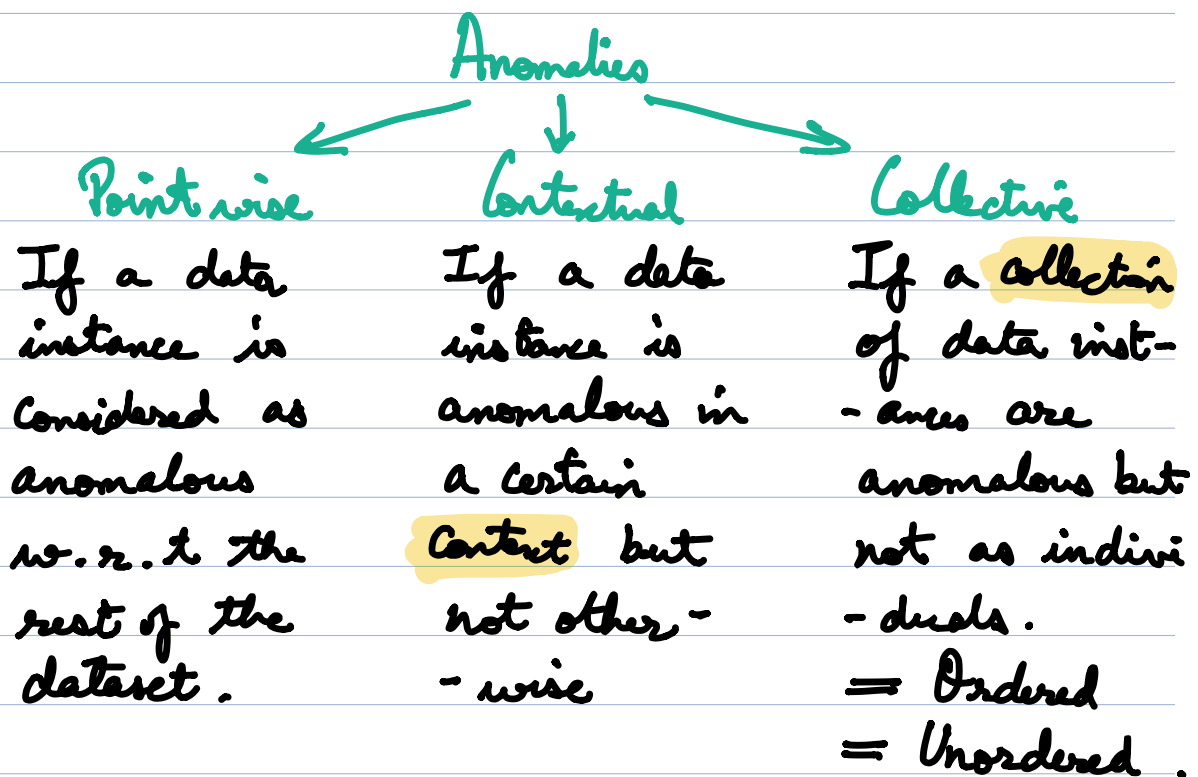 Anomalies
Pointwise
If a data
instance is
considered as
anomalous
w.r.t the
rest of the
dataset.
Contextual
If a data
instance is
anomalous in
a certain
context but
not other-
-wise
Collective
If a collection
of data inst-
-ances are
anomalous but
not as indivi
-duals.
= Ordered
= Unordered.